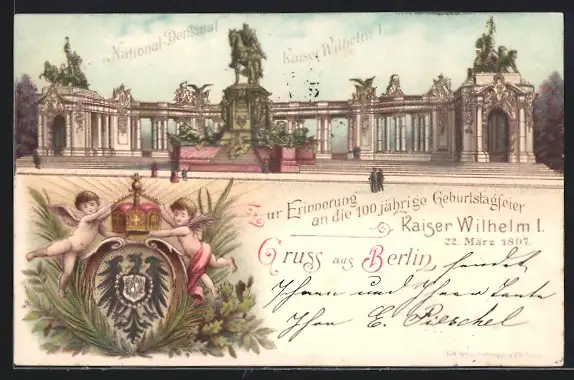 National-Denkmal Kaiser Wilhelm I.
Zur Erinnerung
an die 100 jährige Geburtstagfeier
Kaiser Wilhelm I.
22. März 1897.
Gruss aus Berlin sendet
Ihnen und Ihrer Tante
Ihr E. Pieschel